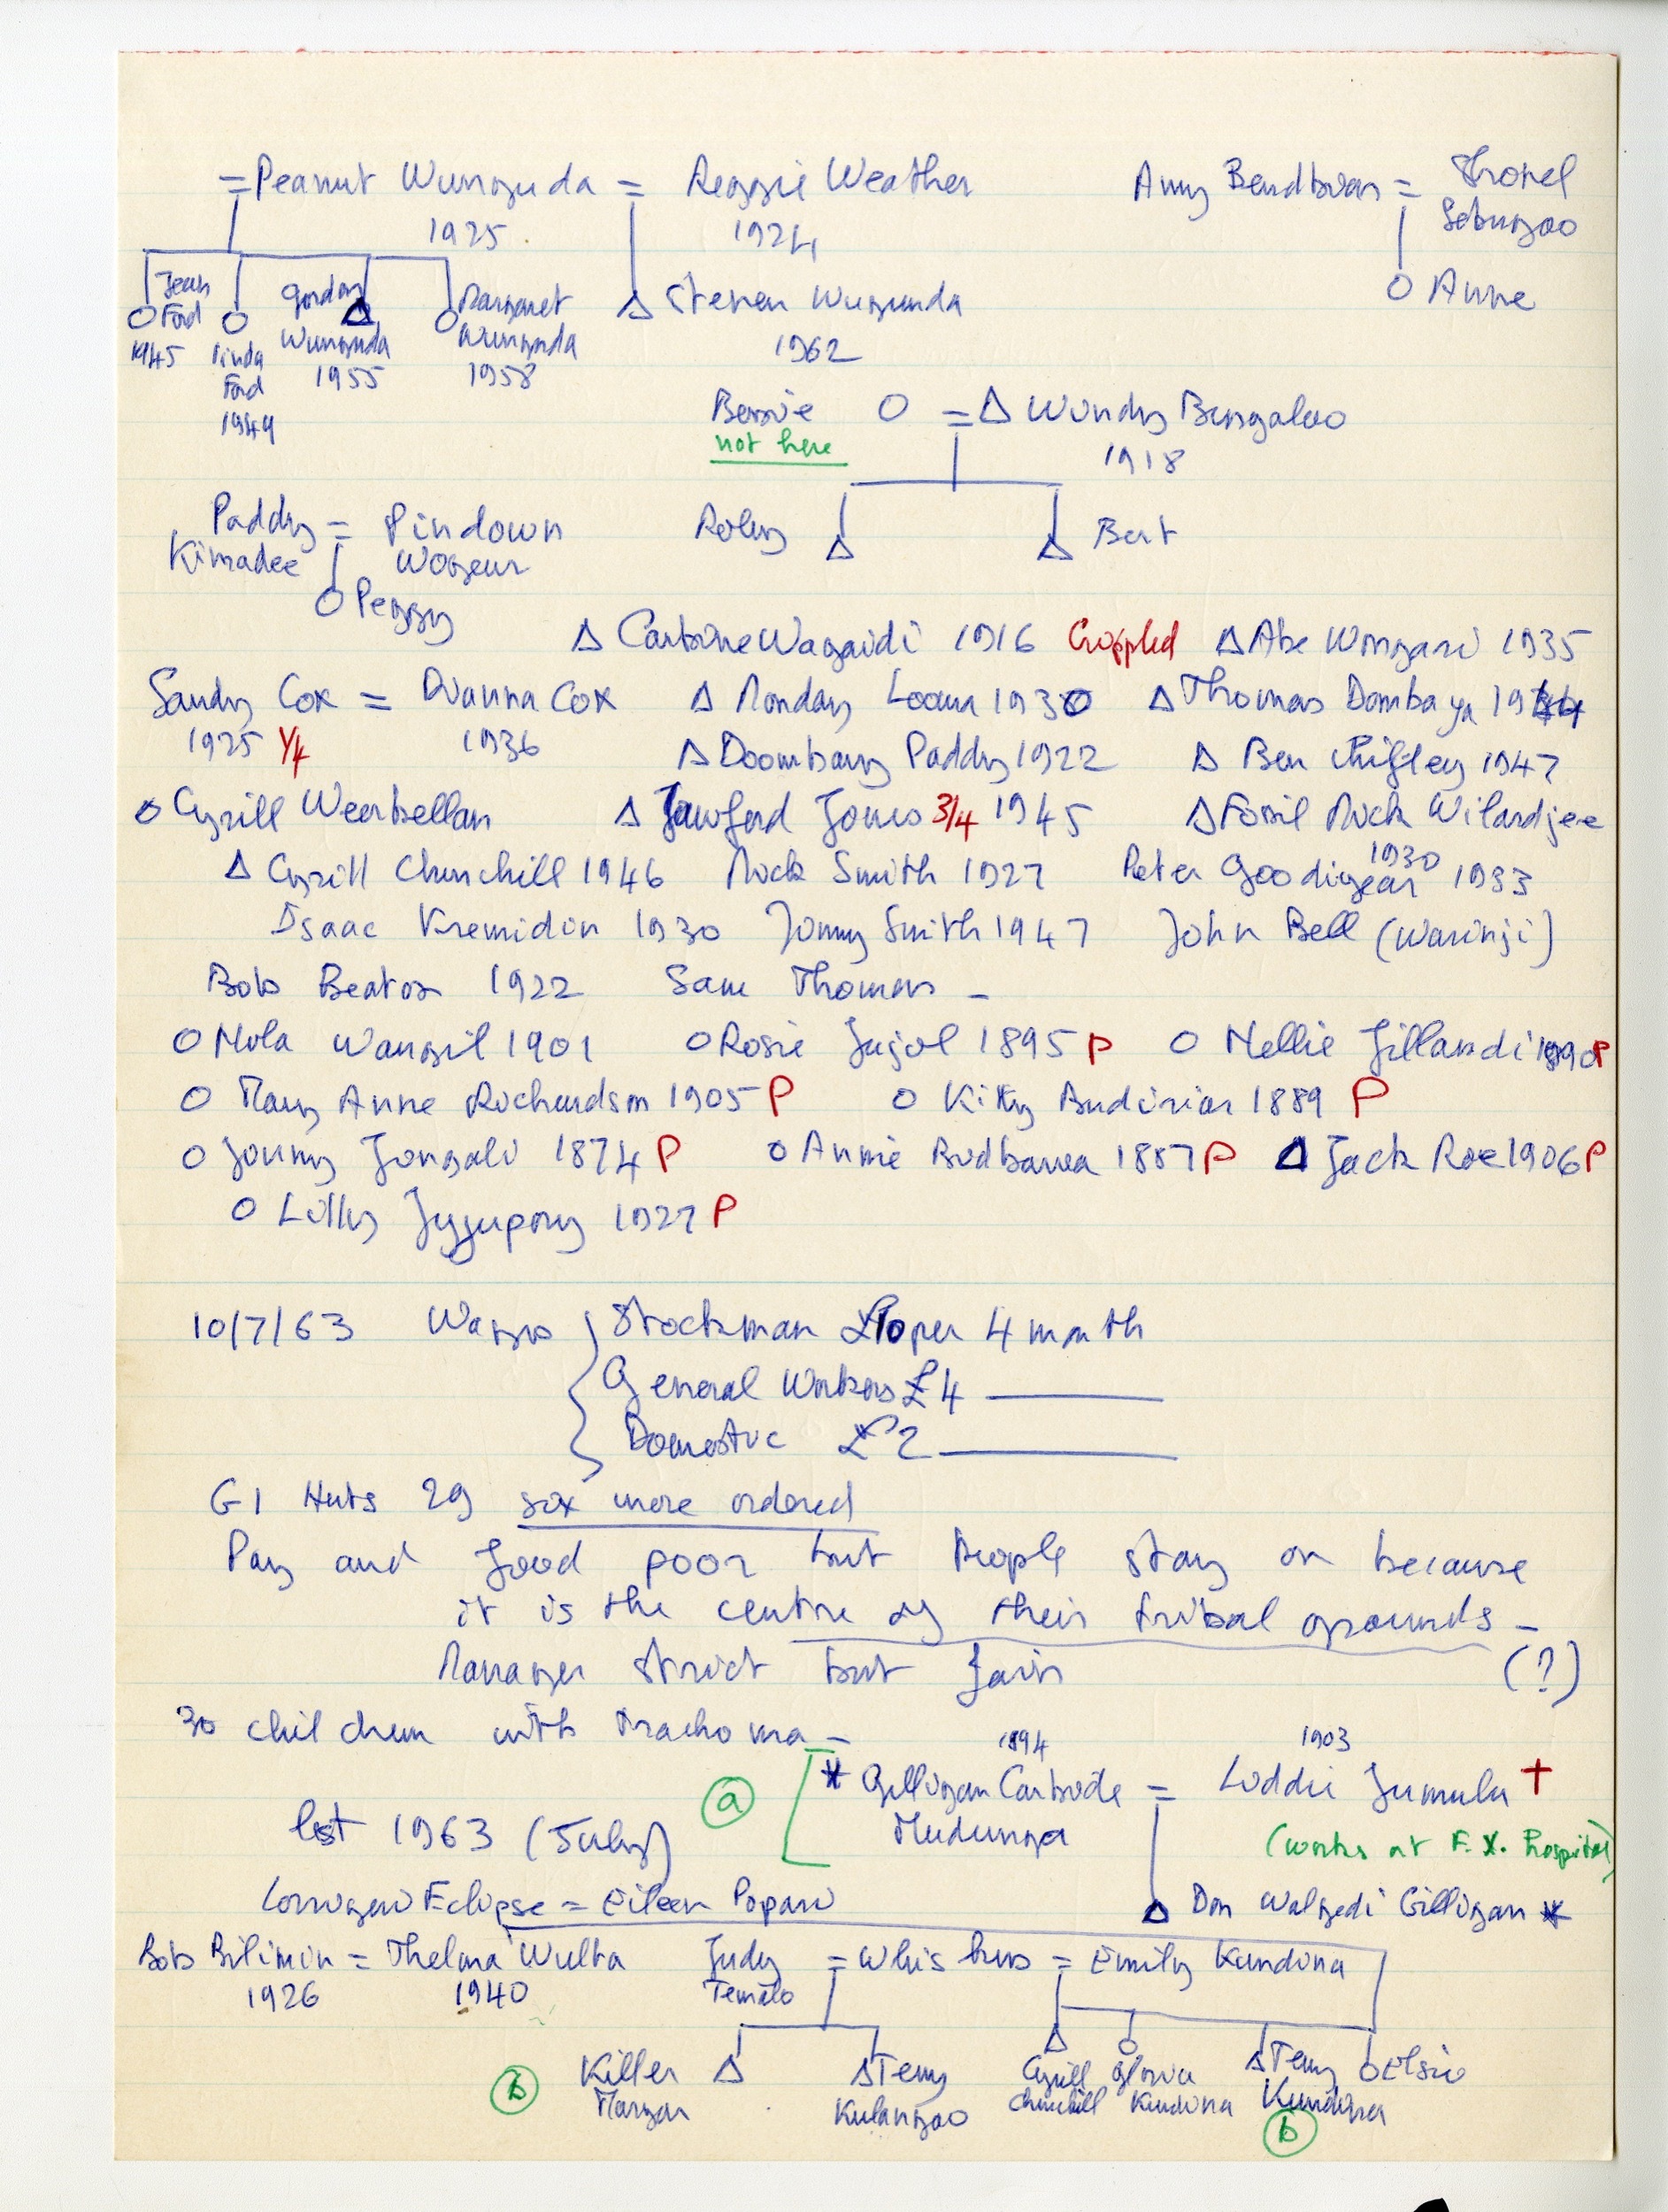 = Peanut Wungunda = Reggie Weather
1925 1924
Amy = 
Anne
Jean Ford 1945
Linda Ford 1949
Gordon Wungunda 1955
Margaret Wungunda 1958
Steven Wugunda
1962
Bessie = Windy Bungaloo
not here
1918
Roley Bert
Paddy = Pindown
Kimadee
Peggy
Wagaidi 1916 Crippled Abe 1935
Sandy Cox = Dianna Cox Monday 1930 Thomas Dombaya
1925 1/4 1936
Doombany Paddy 1922 Ben Chifley 1947
Cyrill Weerbellan Jones 3/4 1945 Fossil Mick Wilardjee
1930
Cyrill Churchill 1946 Mick Smith 1927 Peter Goodigear 1933
Isaac Kremidin 1930 Jonny Smith 1947 John Bell (Warinji)
Bob Beaton 1922 Sam Thomas –
Nola Wangil 1901 Rosie Jujol 1895 P Nellie Jillandi 1890 P
Mary Anne Richardson 1905 P Kitty 1889 P
Jonny Jongali 1874 P Annie 1887 P Jack Roe 1906 P
Lilly 1927 P
10/7/63 Wages { Stockman £10 per 4 month
General Workers £4 ———
Domestic £2 ———
GI Huts 29 six more ordered
Pay and food poor but people stay on because
it is the centre of their tribal grounds –
Manager strict but fair (?)
30 children with trachoma –
1894 1903
(a) * Gilligan Carbide = Luddi Jumulu +
Mudunga
list 1963 (July)
(works at F. X. Hospital)
Eclipse = Eileen Popari
Don Walgedi Gilligan *
Bob Bilimin = Thelma Wulba
1926 1940
Judy = Whiskers = Emily Kundina
(b) Killer
Terry
Cyrill Churchill
Gloria Kundina
Terry Kundina
(b)
Elsie